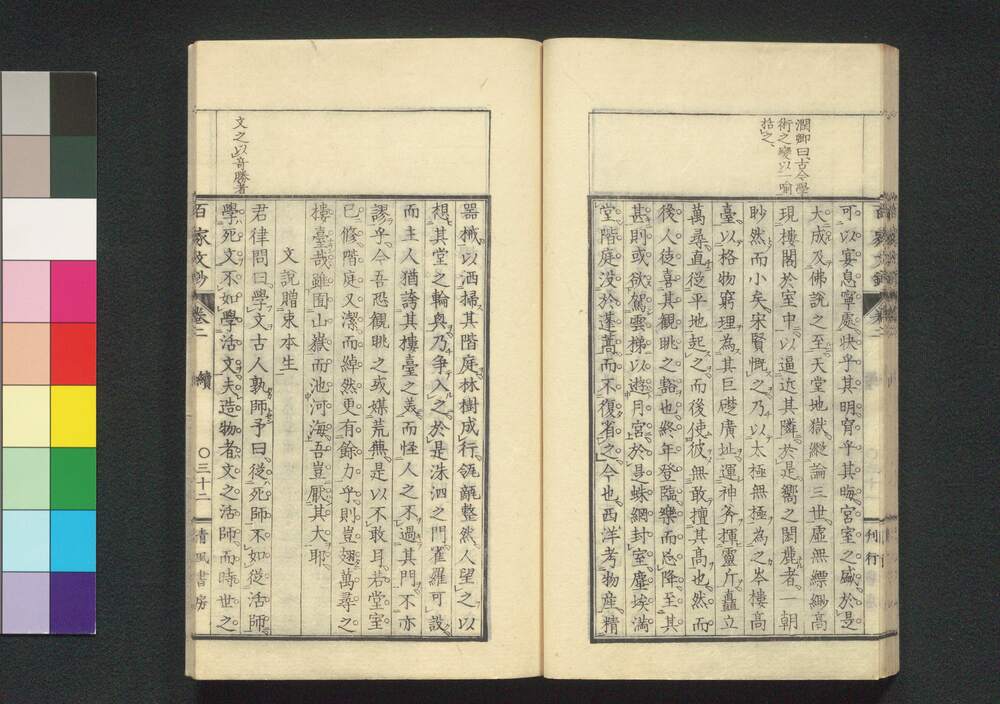 濶卿曰古今學
術之變以一喻
括之、
可以宴息寧處快乎其明窅乎其晦宮室之盛於是
大成及佛說之至天堂地獄縱論三世虛無縹緲高
現樓閣於室中以逼近其隣於是嚮之閎麗者一朝
眇然而小矣宋賢慨之乃以太極無極為之岑樓高
臺以格物窮理為其巨礎廣址運神斧揮靈斤矗立
萬尋直從平地起之而後使彼無敢擅其高也然而
後人徒喜其觀眺之豁也終年登臨樂而忘降至其
甚則或欲駕雲梯以遊月宮於是蛛網封室塵埃滿
堂階庭沒於蓬蒿而不復省之今也西洋考物產精
刊行
文之以奇勝者
器械以洒掃其階庭林樹成行瓴甋整然人望之以
想其堂之輪奐乃爭入之於是洙泗之門雀羅可設
而主人猶誇其樓臺之美而怪人之不過其門不亦
謬乎今吾恐觀眺之或媒荒蕪是以不敢耳若堂室
已修階庭又潔而綽然更有餘力乎則豈翅萬尋之
樓臺哉雖囿山嶽而池河海吾豈厭其大耶
文說贈束本生
君律問曰學文古人孰師予曰從死師不如從活師
學死文不如學活文夫造物者文之活師而時世之
百家文鈔 卷二 續 〇三十二 清風書房